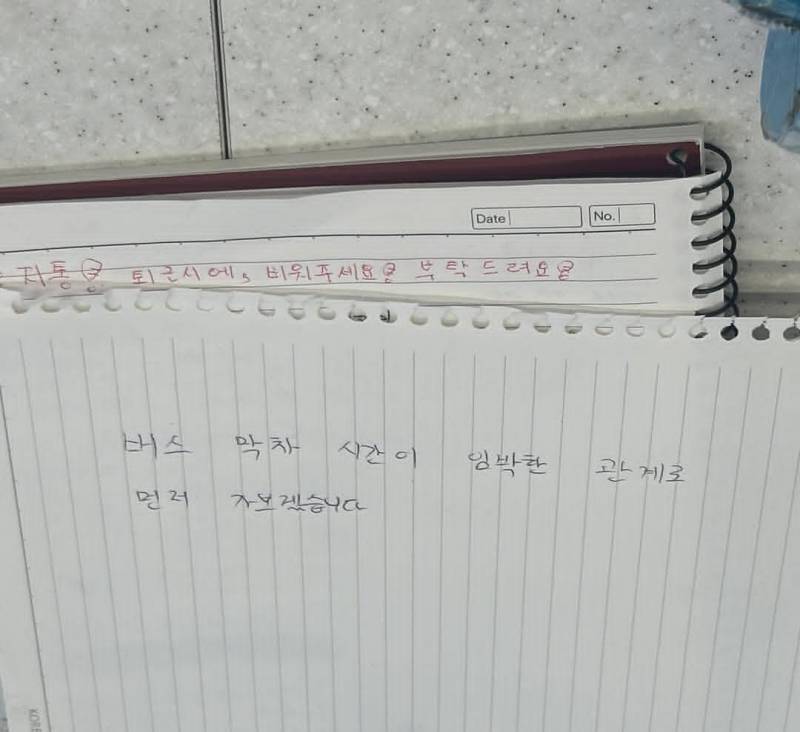 Date
No.
지통용 퇴근시에, 비워주세요용 부탁드려요용
버스 막차 시간이 임박한 관계로
먼저 가보겠습니다
KORE